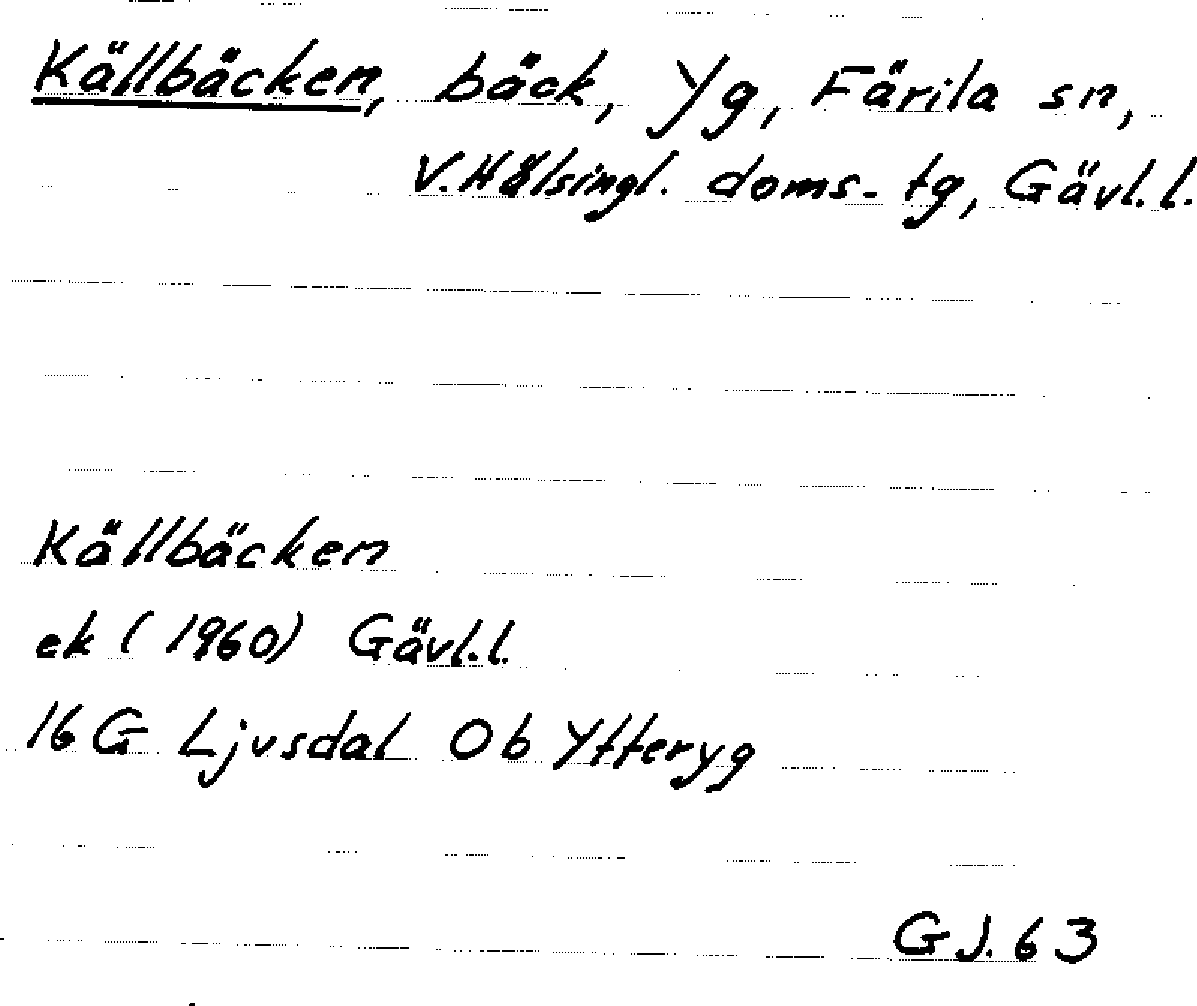 Källbäcken, bäck, Yg, Färila sn,
V. Hälsingl. doms- tg, Gävl.l.
Källbäcken
ek (1960) Gävl.l.
16 G Ljusdal 0b Ytteryg
GJ. 63